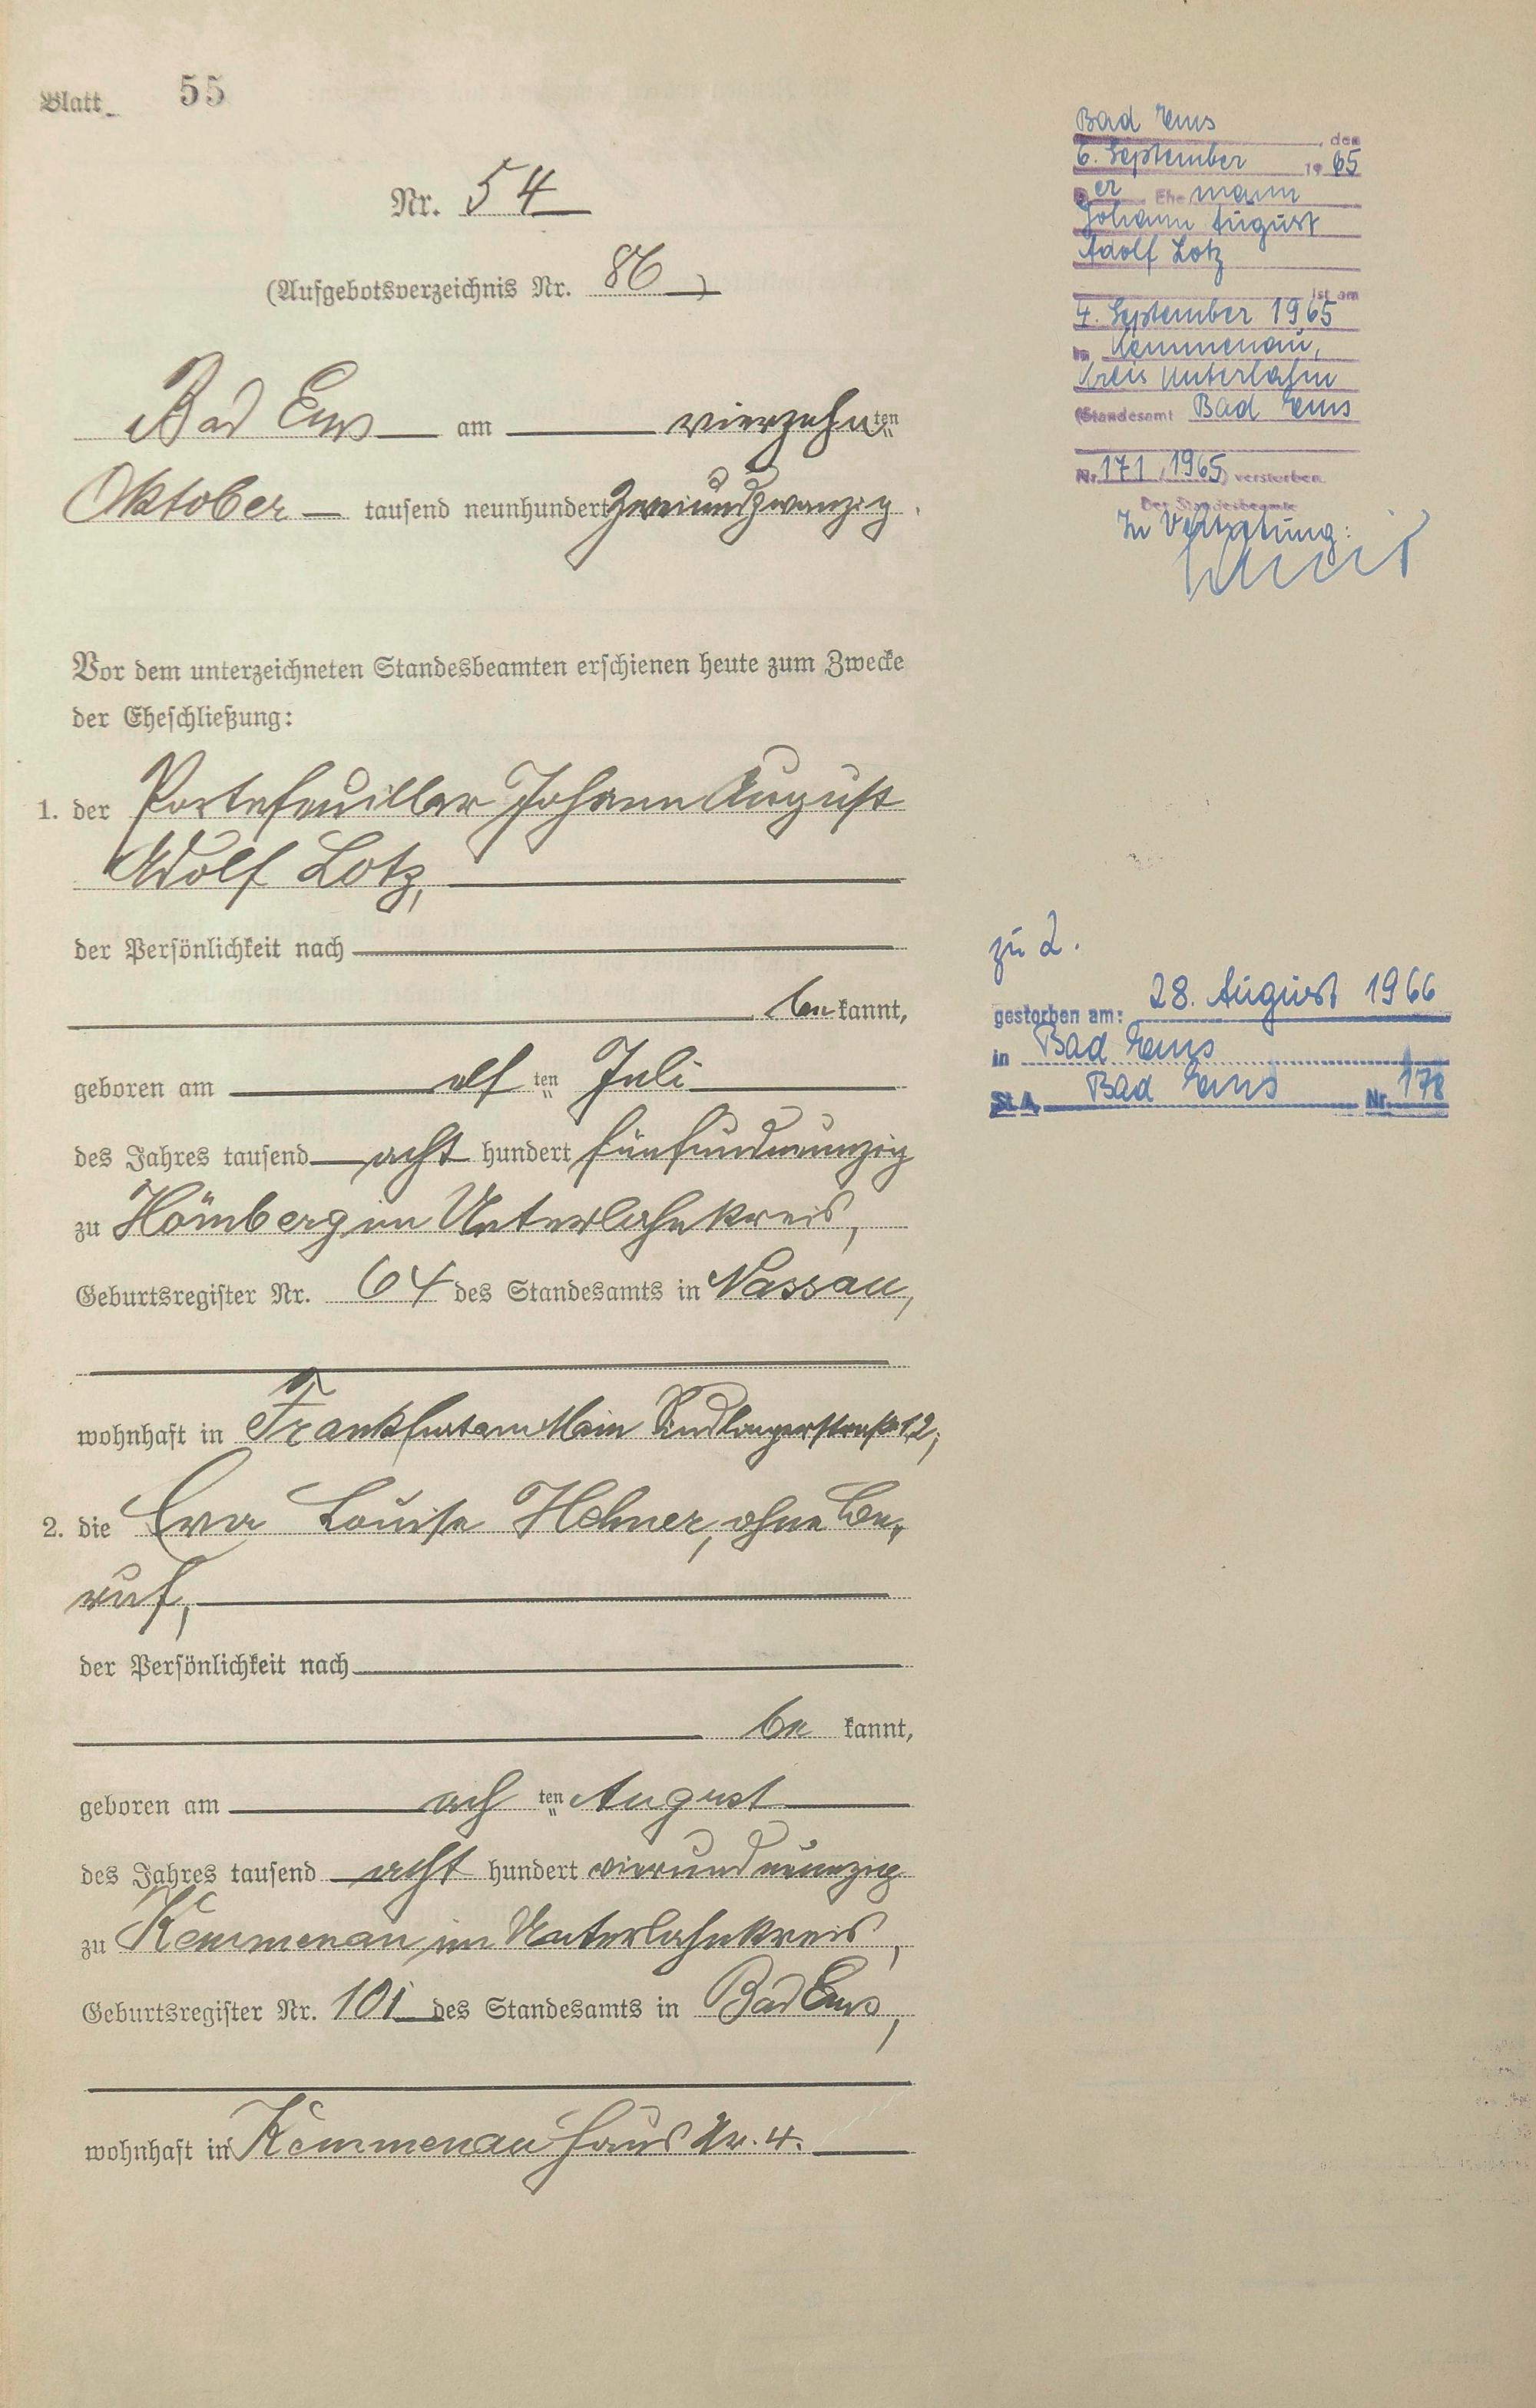 Blatt 55
Nr. 54
(Aufgebotsverzeichnis Nr. 86)
Bad Ems am vierzehnten
Oktober tausend neunhundert zweiundzwanzig.
Vor dem unterzeichneten Standesbeamten erschienen heute zum Zwecke
der Eheschließung:
1. der Portefeuiller Johann August
Adolf Lotz,
der Persönlichkeit nach
bekannt,
geboren am elf ten Juli
des Jahres tausend acht hundert fünfundneunzig
zu Hömberg im Unterlahnkreis,
Geburtsregister Nr. 64 des Standesamts in Nassau,
wohnhaft in Frankfurt am Main Sindlingerstraße 12,
2. die Eva Louise Hehner, ohne Be-
ruf,
der Persönlichkeit nach
be kannt,
geboren am ach ten August
des Jahres tausend acht hundert vierundneunzig
zu Kemmenau im Unterlahnkreis,
Geburtsregister Nr. 101 des Standesamts in Bad Ems,
wohnhaft in Kemmenau Haus Nr. 4.
Bad Ems, den
6. September 19 65
Der Ehemann
Johann August
Adolf Lotz
ist am
4. September 1965
in Kemmenau,
Kreis Unterlahn
(Standesamt Bad Ems
Nr. 171, 1965) verstorben.
Der Standesbeamte
In Vertretung:
zu 2.
gestorben am: 28. August 1966
in Bad Ems
St.A. Bad Ems Nr. 178